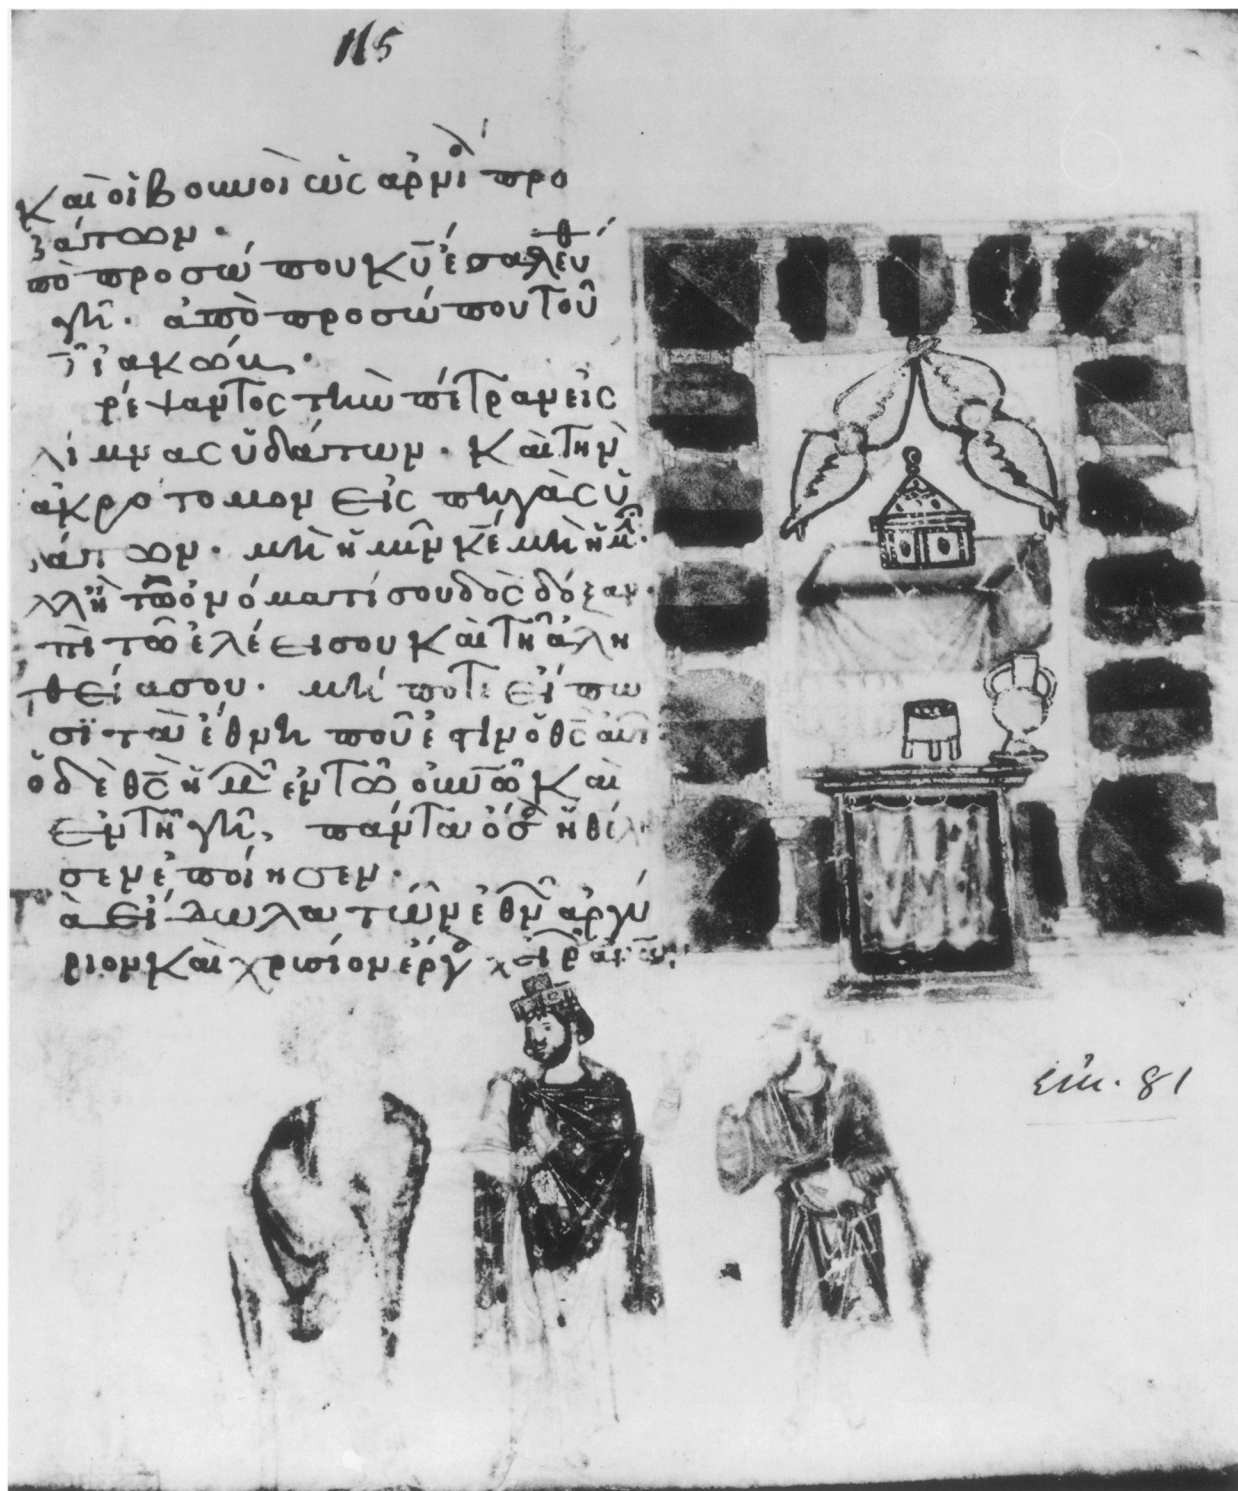 115
καὶ οἱ βουνοὶ ὡς ἀρνί προ
βάτων.
πὸ προσώπου κ̅υ̅ ἐσαλεύθ
γῆ. ἀπὸ προσώπου τοῦ
ἰακώβ.
ρέψαντος τὴν πέτραν εἰς
λίμνας ὑδάτων. καὶ τὴν
ἀκρότομον εἰς πηγὰς ὑ
δάτων. μὴ ἡμῖν κ̅ε̅ μὴ ἡμ.
λλἢ τῶ ὀνόματί σου δὸς δόξαν.
πὶ τῶ ἐλέει σου καὶ τῆ ἀλη
θεία σου. μή ποτε εἴπω
σϊ τὰ ἔθνη ποῦ ἐστιν ὁ θ̅ς̅ αὐτ
ὁ δὲ θ̅ς̅ ἡμ ἐν τῶ οὐνῶ καὶ
ἐν τῆ γῆ, πάντα ὅσ ἠθέλη
σεν ἐποίησεν.
ὰ εἴδωλα τῶν ἐθν ἀργύ
ριον καὶ χρυσίον ἔργ χειρ
εἰκ. 81